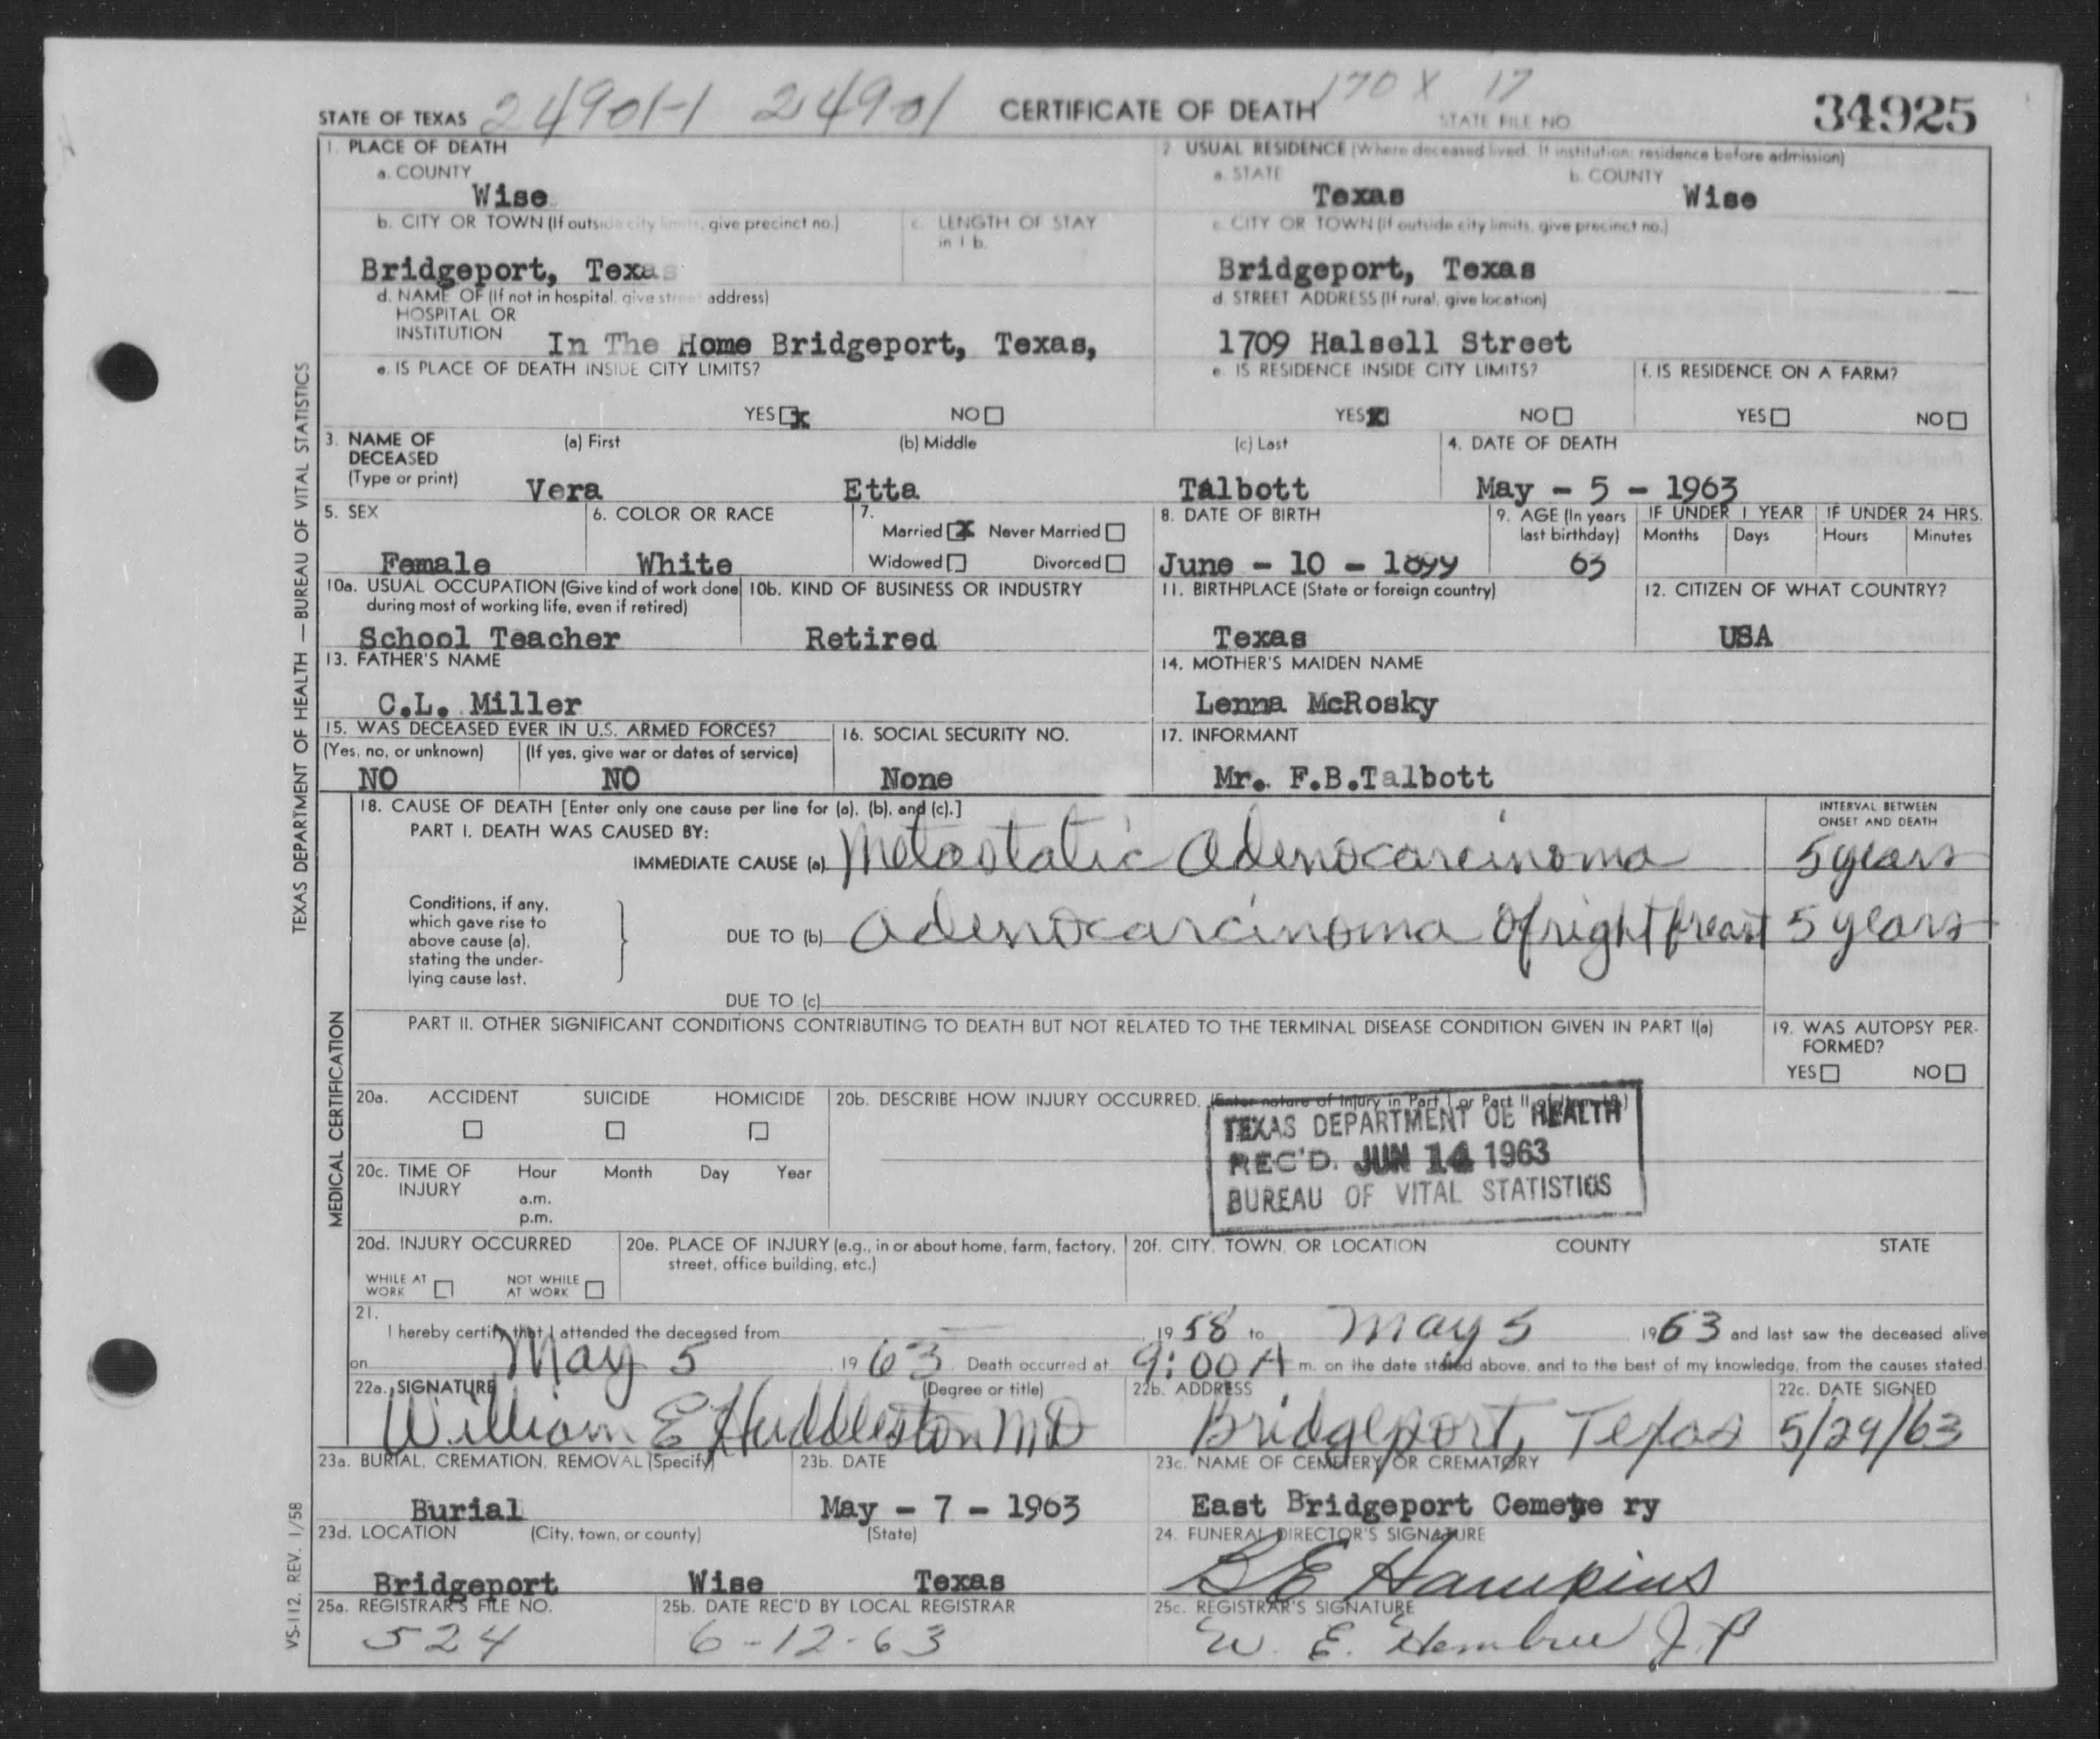 STATE OF TEXAS 24901-1 24901 CERTIFICATE OF DEATH 170 X 17 STATE FILE NO. 34925
1. PLACE OF DEATH
a. COUNTY
Wise
2. USUAL RESIDENCE (Where deceased lived. If institution: residence before admission)
a. STATE
Texas
b. COUNTY
Wise
b. CITY OR TOWN (If outside city limits, give precinct no.)
Bridgeport, Texas
c. LENGTH OF STAY
in 1 b.
c. CITY OR TOWN (If outside city limits, give precinct no.)
Bridgeport, Texas
d. NAME OF (If not in hospital, give street address)
HOSPITAL OR
INSTITUTION In The Home Bridgeport, Texas,
d. STREET ADDRESS (If rural, give location)
1709 Halsell Street
e. IS PLACE OF DEATH INSIDE CITY LIMITS?
YES x NO
e. IS RESIDENCE INSIDE CITY LIMITS?
YES x NO
f. IS RESIDENCE ON A FARM?
YES NO
3. NAME OF
DECEASED
(Type or print)
(a) First
Vera
(b) Middle
Etta
(c) Last
Talbott
4. DATE OF DEATH
May - 5 - 1963
5. SEX
Female
6. COLOR OR RACE
White
7.
Married x Never Married
Widowed Divorced
8. DATE OF BIRTH
June - 10 - 1899
9. AGE (In years
last birthday)
63
IF UNDER 1 YEAR
Months Days
IF UNDER 24 HRS.
Hours Minutes
10a. USUAL OCCUPATION (Give kind of work done
during most of working life, even if retired)
School Teacher
10b. KIND OF BUSINESS OR INDUSTRY
Retired
11. BIRTHPLACE (State or foreign country)
Texas
12. CITIZEN OF WHAT COUNTRY?
USA
13. FATHER'S NAME
C.L. Miller
14. MOTHER'S MAIDEN NAME
Lenna McRosky
15. WAS DECEASED EVER IN U.S. ARMED FORCES?
(Yes, no, or unknown)
NO
(If yes, give war or dates of service)
NO
16. SOCIAL SECURITY NO.
None
17. INFORMANT
Mr. F.B.Talbott
18. CAUSE OF DEATH [Enter only one cause per line for (a), (b), and (c).]
PART I. DEATH WAS CAUSED BY:
IMMEDIATE CAUSE (a) Metastatic Adenocarcinoma
INTERVAL BETWEEN
ONSET AND DEATH
5 years
Conditions, if any,
which gave rise to
above cause (a),
stating the under-
lying cause last.
DUE TO (b) Adenocarcinoma of right breast 5 years
DUE TO (c)
PART II. OTHER SIGNIFICANT CONDITIONS CONTRIBUTING TO DEATH BUT NOT RELATED TO THE TERMINAL DISEASE CONDITION GIVEN IN PART I(a)
19. WAS AUTOPSY PER-
FORMED?
YES NO
20a. ACCIDENT SUICIDE HOMICIDE
20b. DESCRIBE HOW INJURY OCCURRED. (Enter nature of injury in Part I or Part II of Item 18.)
TEXAS DEPARTMENT OF HEALTH
REC'D. JUN 14 1963
BUREAU OF VITAL STATISTICS
20c. TIME OF
INJURY
Hour Month Day Year
a.m.
p.m.
20d. INJURY OCCURRED
WHILE AT
WORK
NOT WHILE
AT WORK
20e. PLACE OF INJURY (e.g., in or about home, farm, factory,
street, office building, etc.)
20f. CITY, TOWN, OR LOCATION COUNTY STATE
21.
I hereby certify that I attended the deceased from , 1958 to May 5 1963 and last saw the deceased alive
on May 5 , 1963. Death occurred at 9:00 A m. on the date stated above, and to the best of my knowledge, from the causes stated.
22a. SIGNATURE (Degree or title)
William E Huddleston MD
22b. ADDRESS
Bridgeport, Texas
22c. DATE SIGNED
5/29/63
23a. BURIAL, CREMATION, REMOVAL (Specify)
Burial
23b. DATE
May - 7 - 1963
23c. NAME OF CEMETERY OR CREMATORY
East Bridgeport Cemete ry
23d. LOCATION (City, town, or county) (State)
Bridgeport Wise Texas
24. FUNERAL DIRECTOR'S SIGNATURE
B E Hawkins
25a. REGISTRAR'S FILE NO.
524
25b. DATE REC'D BY LOCAL REGISTRAR
6-12-63
25c. REGISTRAR'S SIGNATURE
W. E. Hembree J.P
TEXAS DEPARTMENT OF HEALTH — BUREAU OF VITAL STATISTICS
MEDICAL CERTIFICATION
VS-112, REV. 1/58